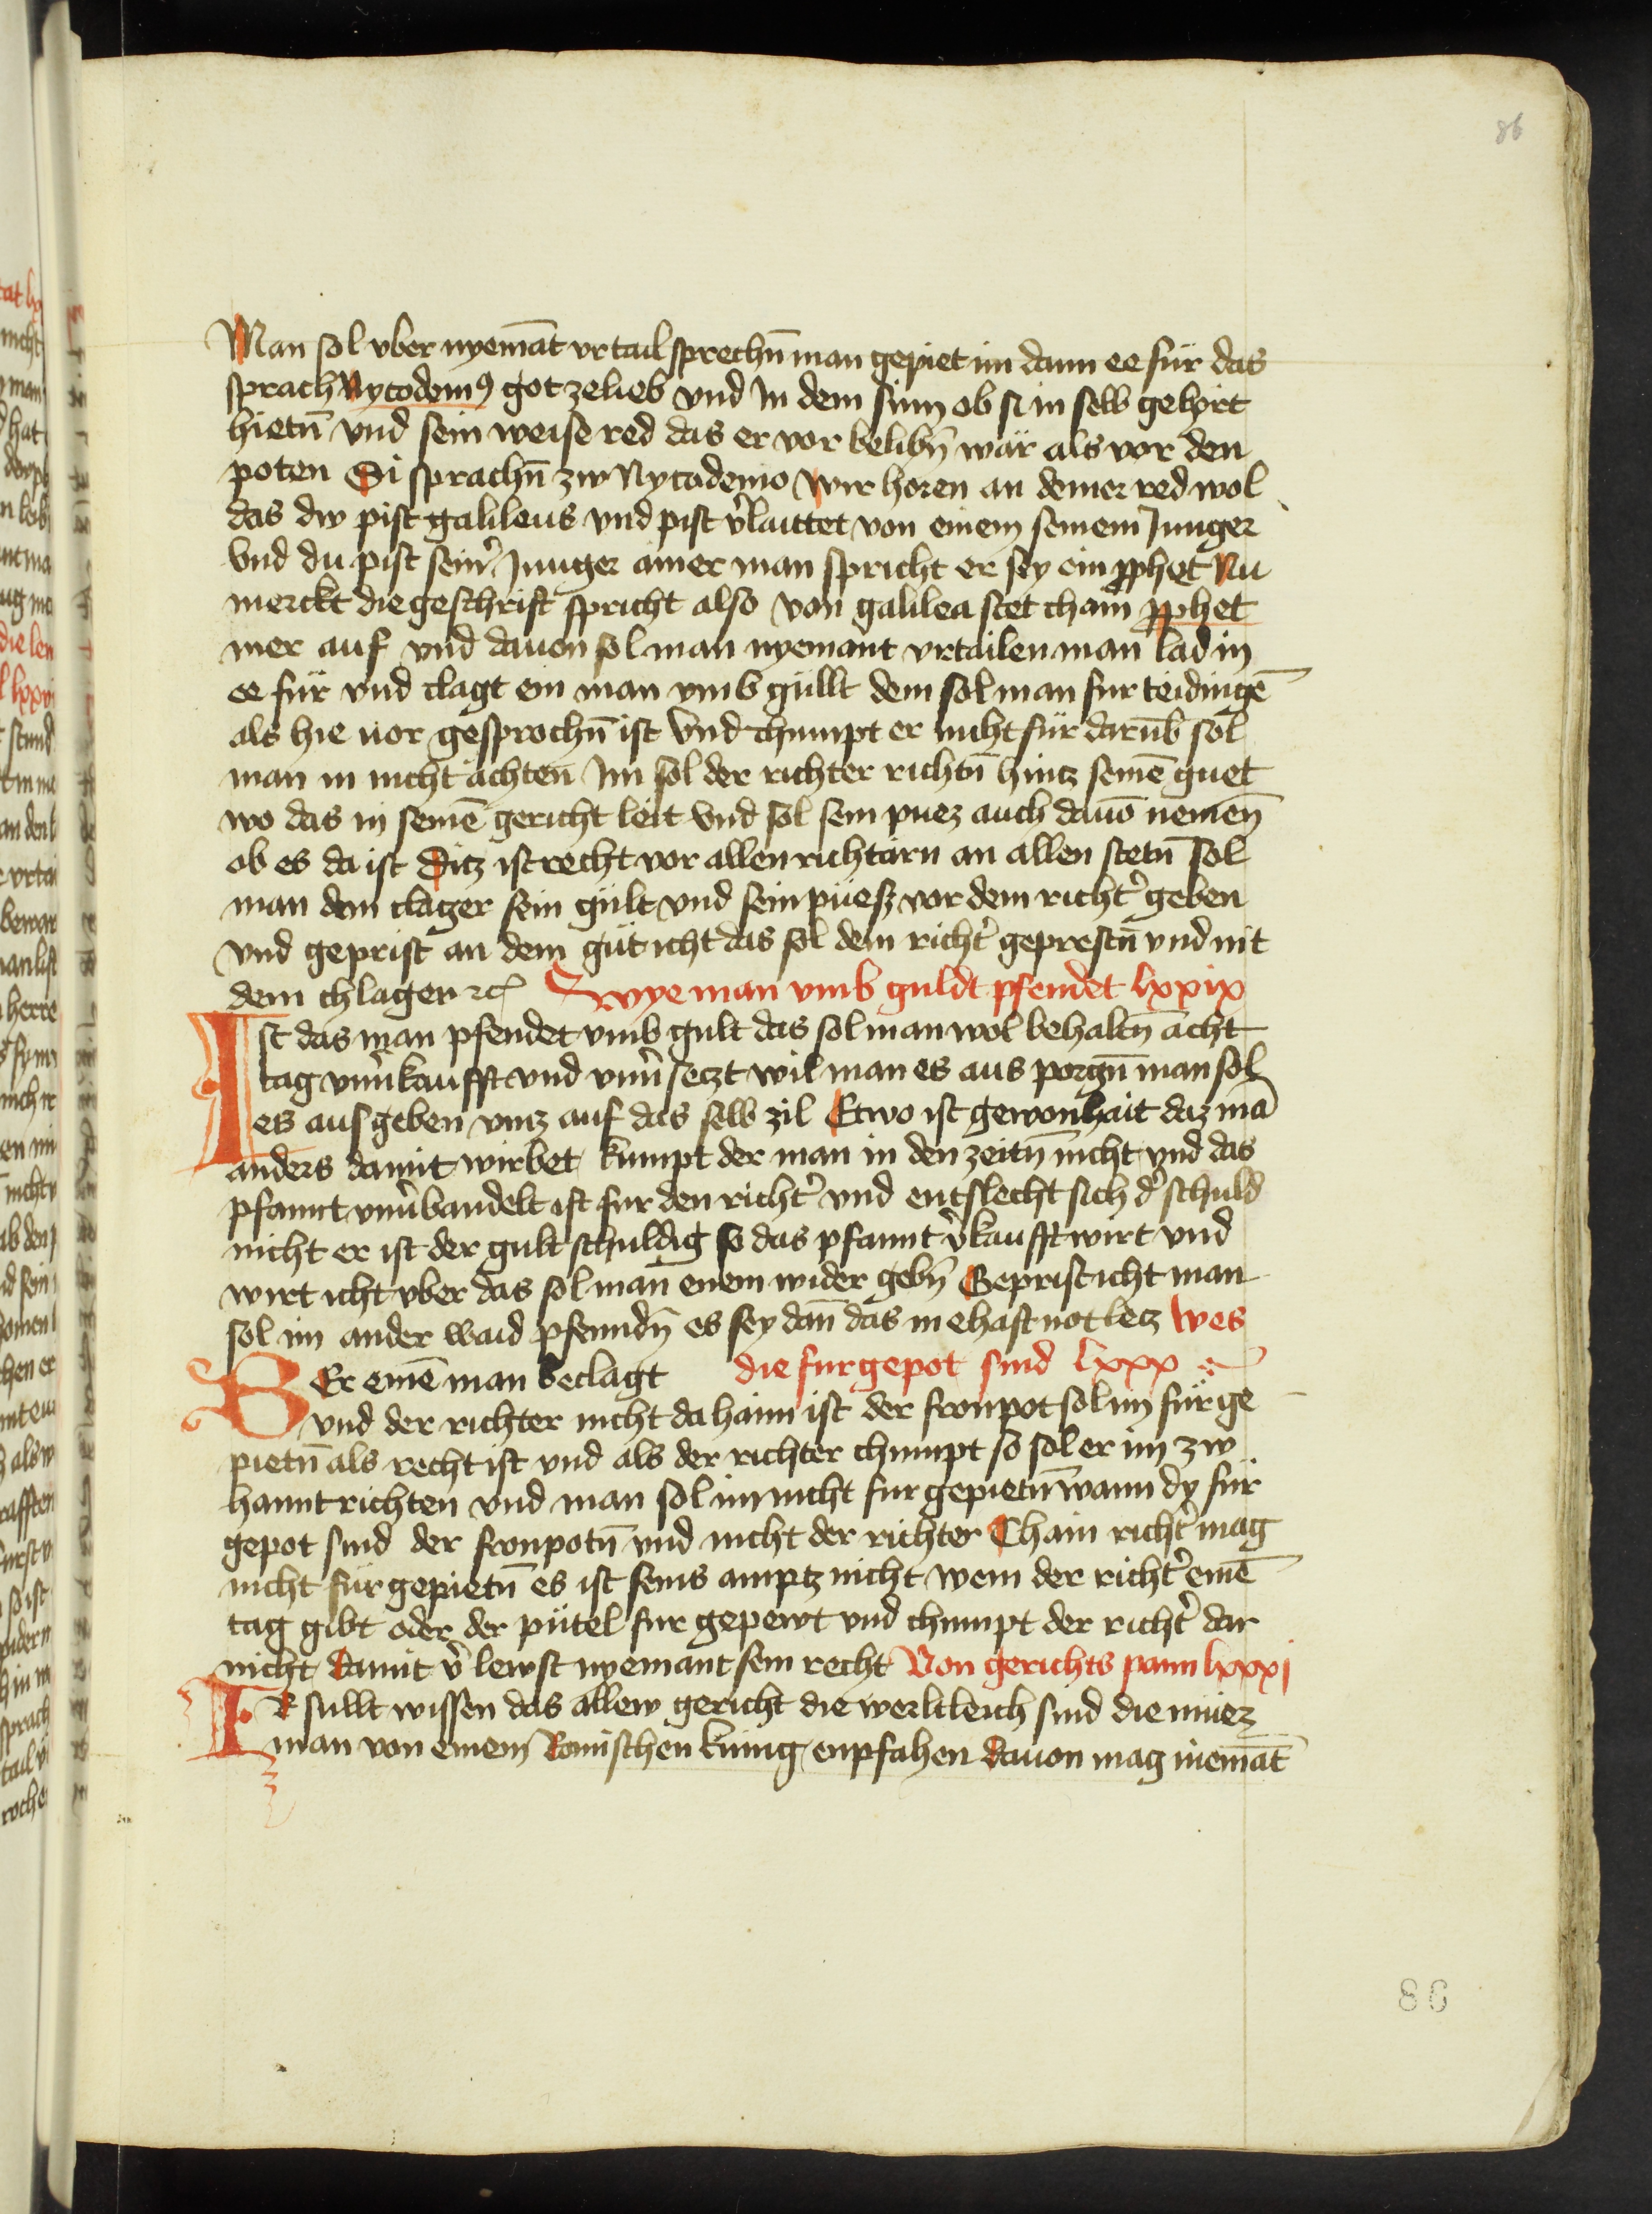 86
Man sol vber nyemāt vrtail sprechn̄ man gepiet im dann ee für das
sprach Nycodemꝰ got zelieb vnd In dem sinn ob si in selb gehört
hietn̄ vnd sein weise red das er vor belibn̄ wär als vor den
poten Si sprachn̄ zw Nycodemo wir horen an deiner red wol
das dw pist galileus vnd pist v̓laittet von einem seinem Junger
Vnd du pist sein̓ Junger ainer man spricht er sey ein ꝓphet Nu
merckt die geschrift spricht also von galilea stet chain ꝓphet
mer auf vnd dauon sol man nyemant vrtailen man lad in
ee für vnd clagt ein man vmb gullt dem sol man fur teidingē
als hie uor gesprochn̄ ist Vnd chumpt er nicht für darūb sol
man in nicht ächten Im sol der richter richtn̄ hintz seinē guet
wo das in seinē gericht leit vnd sol sein puez auch dauō nemen̄
ob es da ist Ditz ist recht vor allen richtärn an allen stetn̄ Sol
man dem clager sein gült vnd sein püesz vor dem richt̓ geben
vnd geprist an dem güt icht das sol dem richt̓ geprestn̄ vnd nit
dem chlager ꝛc Wye man vmb guldt pfendet lxxix
Ist das man pfendet vmb gult das sol man wol behaltn̄ acht
tag vnu̓kaufft vnd vnu̓setzt wil man es aus porgn̄ man sol
es aus geben vntz auf das selb zil Etwo ist gewonhait daz mā
anders damit wirbet kumpt der man in den zeitn̄ nicht vnd das
pfannt vnu̓bandelt ist fur den richt̓ vnd entslecht sich d̓ schuld
nicht er ist der gult schuldig so das pfannt v̓kaufft wirt vnd
wirt icht vber das sol man enem wider gebn̄ Geprist icht man
sol im ander waid pfenndn̄ es sey dan̄ das in ehaft not letz Wes
BEr einē man beclagt die furgepot sind lxxx
vnd der richter nicht da haim ist der fronpot sol im für ge
pietn̄ als recht ist vnd als der richter chumpt so sol er im zw
hannt richten vnd man sol im nicht fur gepietn̄ wann dy für
gepot sind der fronpotn̄ vnd nicht der richter Chain richt̓ mag
nicht für gepietn̄ es ist seins amptz nicht wem der richt̓ einē
tag gibt oder der pütel fur gepewt vnd chumpt der richt̓ dar
nicht damit v̓lewst nyemant sein recht Von gerichts pann lxxxi
IR sullt wissen das allew gericht die werltleich sind die muez
man von einem Romischen künig enpfahen dauon mag niemāt
86